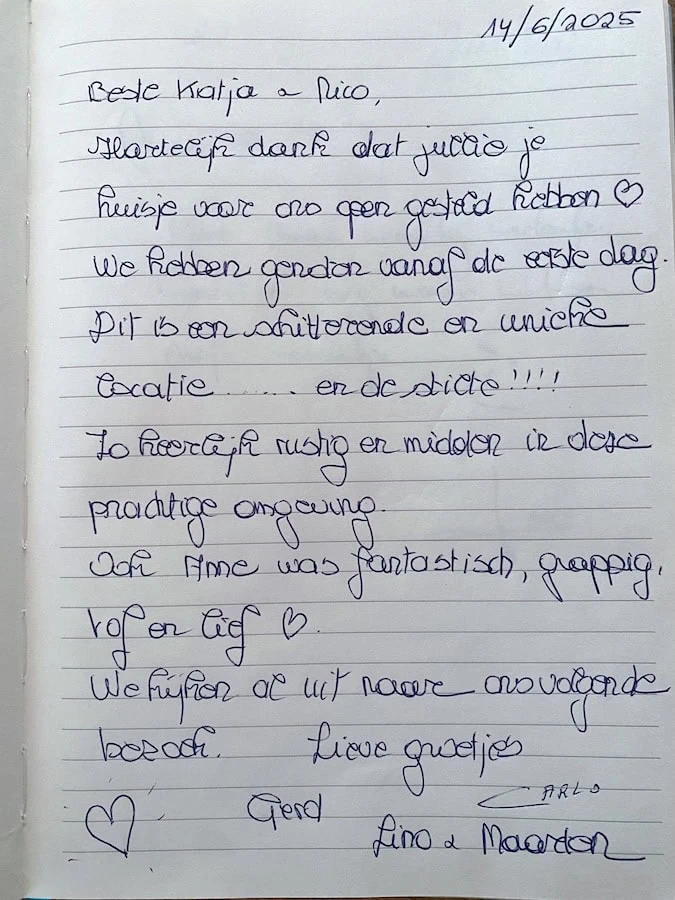 14/6/2025
Beste Katja & Nico,
Hartelijk dank dat jullie je
huisje voor ons open gesteld hebben ♡
We hebben genoten vanaf de eerste dag.
Dit is een schitterende en unieke
locatie ...... en de stilte !!!!
Zo heerlijk rustig en midden in deze
prachtige omgeving.
Ook Anne was fantastisch, grappig,
tof en lief ♡.
We kijken al uit naar ons volgende
bezoek. Lieve groetjes
Gerd CARLO
Lino & Maarten